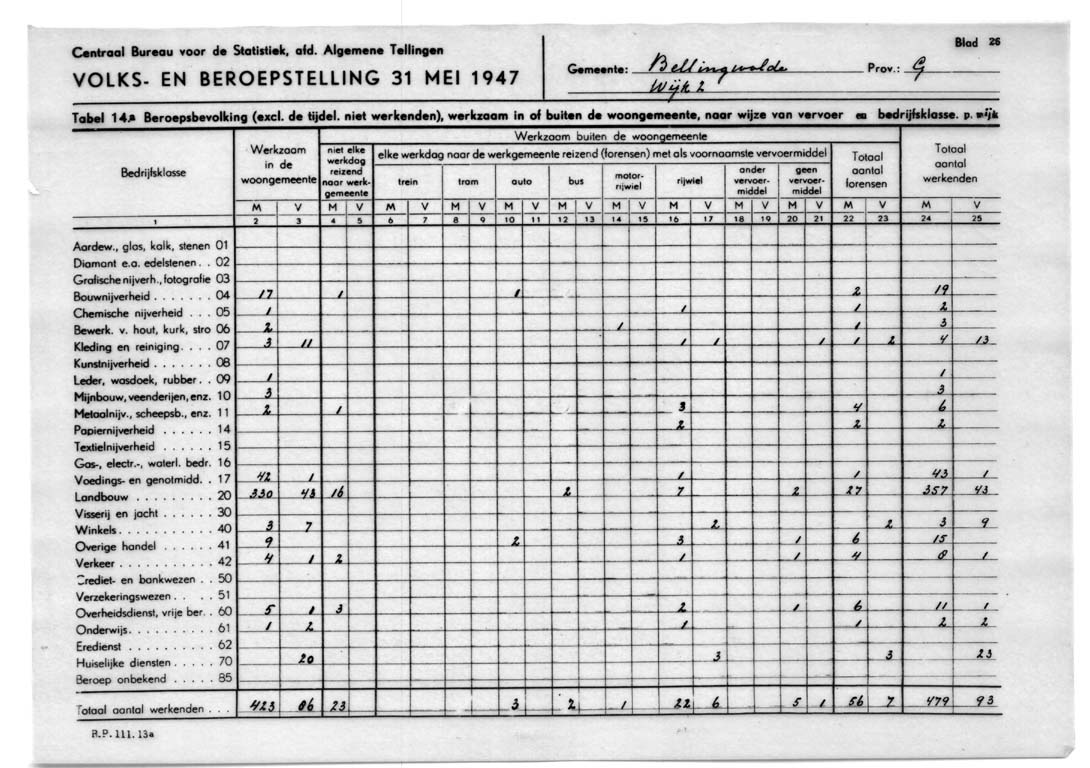 Centraal Bureau voor de Statistiek, afd. Algemene Tellingen
VOLKS- EN BEROEPSTELLING 31 MEI 1947
Gemeente: Bellingwolde Prov.: G
Wijk 2
Blad 26
Tabel 14.a Beroepsbevolking (excl. de tijdel. niet werkenden), werkzaam in of buiten de woongemeente, naar wijze van vervoer en bedrijfsklasse. p. wijk
Bedrijfsklasse
Werkzaam in de woongemeente
Werkzaam buiten de woongemeente
niet elke werkdag reizend naar werk-gemeente
elke werkdag naar de werkgemeente reizend (forensen) met als voornaamste vervoermiddel
trein tram auto bus motor-rijwiel rijwiel ander vervoer-middel geen vervoer-middel
Totaal aantal forensen
Totaal aantal werkenden
M V M V M V M V M V M V M V M V M V M V M V M V
1 2 3 4 5 6 7 8 9 10 11 12 13 14 15 16 17 18 19 20 21 22 23 24 25
Aardew., glas, kalk, stenen 01
Diamant e.a. edelstenen . . 02
Grafische nijverh., fotografie 03
Bouwnijverheid . . . . . . . 04 17 1 1 2 19
Chemische nijverheid . . . 05 1 1 1 2
Bewerk. v. hout, kurk, stro 06 2 1 1 3
Kleding en reiniging . . . . 07 3 11 1 1 1 1 2 4 13
Kunstnijverheid . . . . . . . 08
Leder, wasdoek, rubber . . 09 1 1
Mijnbouw, veenderijen, enz. 10 3 3
Metaalnijv., scheepsb., enz. 11 2 1 3 4 6
Papiernijverheid . . . . . . 14 2 2 2
Textielnijverheid . . . . . . 15
Gas-, electr.-, waterl. bedr. 16
Voedings- en genotmidd. . 17 42 1 1 1 43 1
Landbouw . . . . . . . . . 20 330 43 16 2 7 2 27 357 43
Visserij en jacht . . . . . . 30
Winkels . . . . . . . . . . 40 3 7 2 2 3 9
Overige handel . . . . . . 41 9 2 3 1 6 15
Verkeer . . . . . . . . . . 42 4 1 2 1 1 4 8 1
Crediet- en bankwezen . . 50
Verzekeringswezen . . . . 51
Overheidsdienst, vrije ber. . 60 5 1 3 2 1 6 11 1
Onderwijs . . . . . . . . . 61 1 2 1 1 2 2
Eredienst . . . . . . . . . 62
Huiselijke diensten . . . . . 70 20 3 3 23
Beroep onbekend . . . . . 85
Totaal aantal werkenden . . . 423 86 23 3 2 1 22 6 5 1 56 7 479 93
R.P. 111. 13a